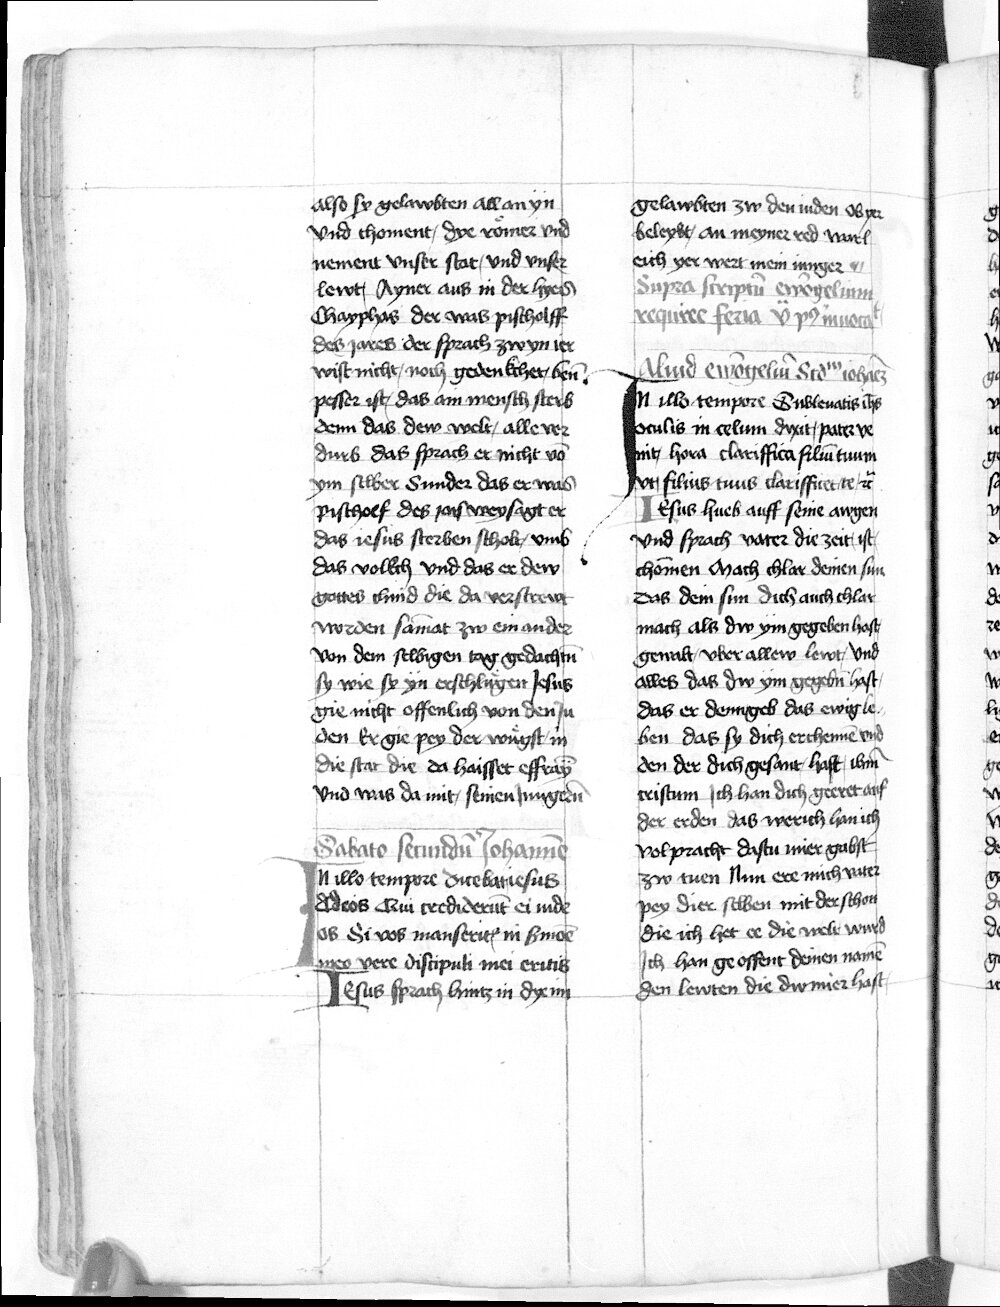 also sy gelawbten all an yn
vnd choment / dye römer vnd
nement vnser stat / vnd vnser
lewt / Ayner aus in der hyes
Chayphas der was pischolff
des jares der sprach zw yn ier
wist nicht / noch gedenkchet / den̄
pesser ist / das ain mensch sterb
denn das dew welt / alle ver
durb das sprach er nicht vō
ym selber Sunder das er was
pischolf des jars weysagt er
das iesus sterben scholt / vmb
das volkch vnd das er dew
gottes chind die da verstrewt
worden sāmat zw ein ander
von dem selbigen tag gedachtn̄
sy wie sy yn erschlügen Jesus
gie nicht offenlich von den Ju
den Er gie pey der wüst in
die stat die da haisset effraȳ
vnd was da mit / seinen Jungern
Sabato secundū Johannē
In illo tempore dicebat iesus
Ad eos Qui crediderūt ei iude
os Si vos manserit̄ in smōe
meo vere discipuli mei eritis
Iesus sprach hintz in dye im
gelawbten zw den iuden Ob yer
beleybt / an meyner red warl
eich yer wert mein iunger
Supra scriptū ewāgelium
require feria v̄ pꝰ inuocat
Aliud ewāgeliū Scdm iohāez
In illo tempore Subleuatis ih̄s
oculis in celum dyxit / pater ve
nit / hora clariffica filiū tuum
vt / filius tuus clarifficet / te / rc̄
Iesus hueb auff seine awgen
vnd sprach vater die zeit / ist /
chōmen Mach chlar deinen sun
Das dein sun dich auch chlar
mach als dw ym gegeben hast /
gewalt / vber allew lewt / vnd
alles das dw ym gegebn̄ hast /
das er dem geb das ewig le
ben das sy dich erchennē vnd
den der dich gesant / hast / ihm̄
cristum Ich han dich geeret auf
der erden das werich han ich
volpracht dastu mier gabst
zw tuen Nun ere mich vater
pey dier selben mit der schon
die ich het ee die welt wurd
Ich han geoffent deinen namē
den lewten die dw mier hast /